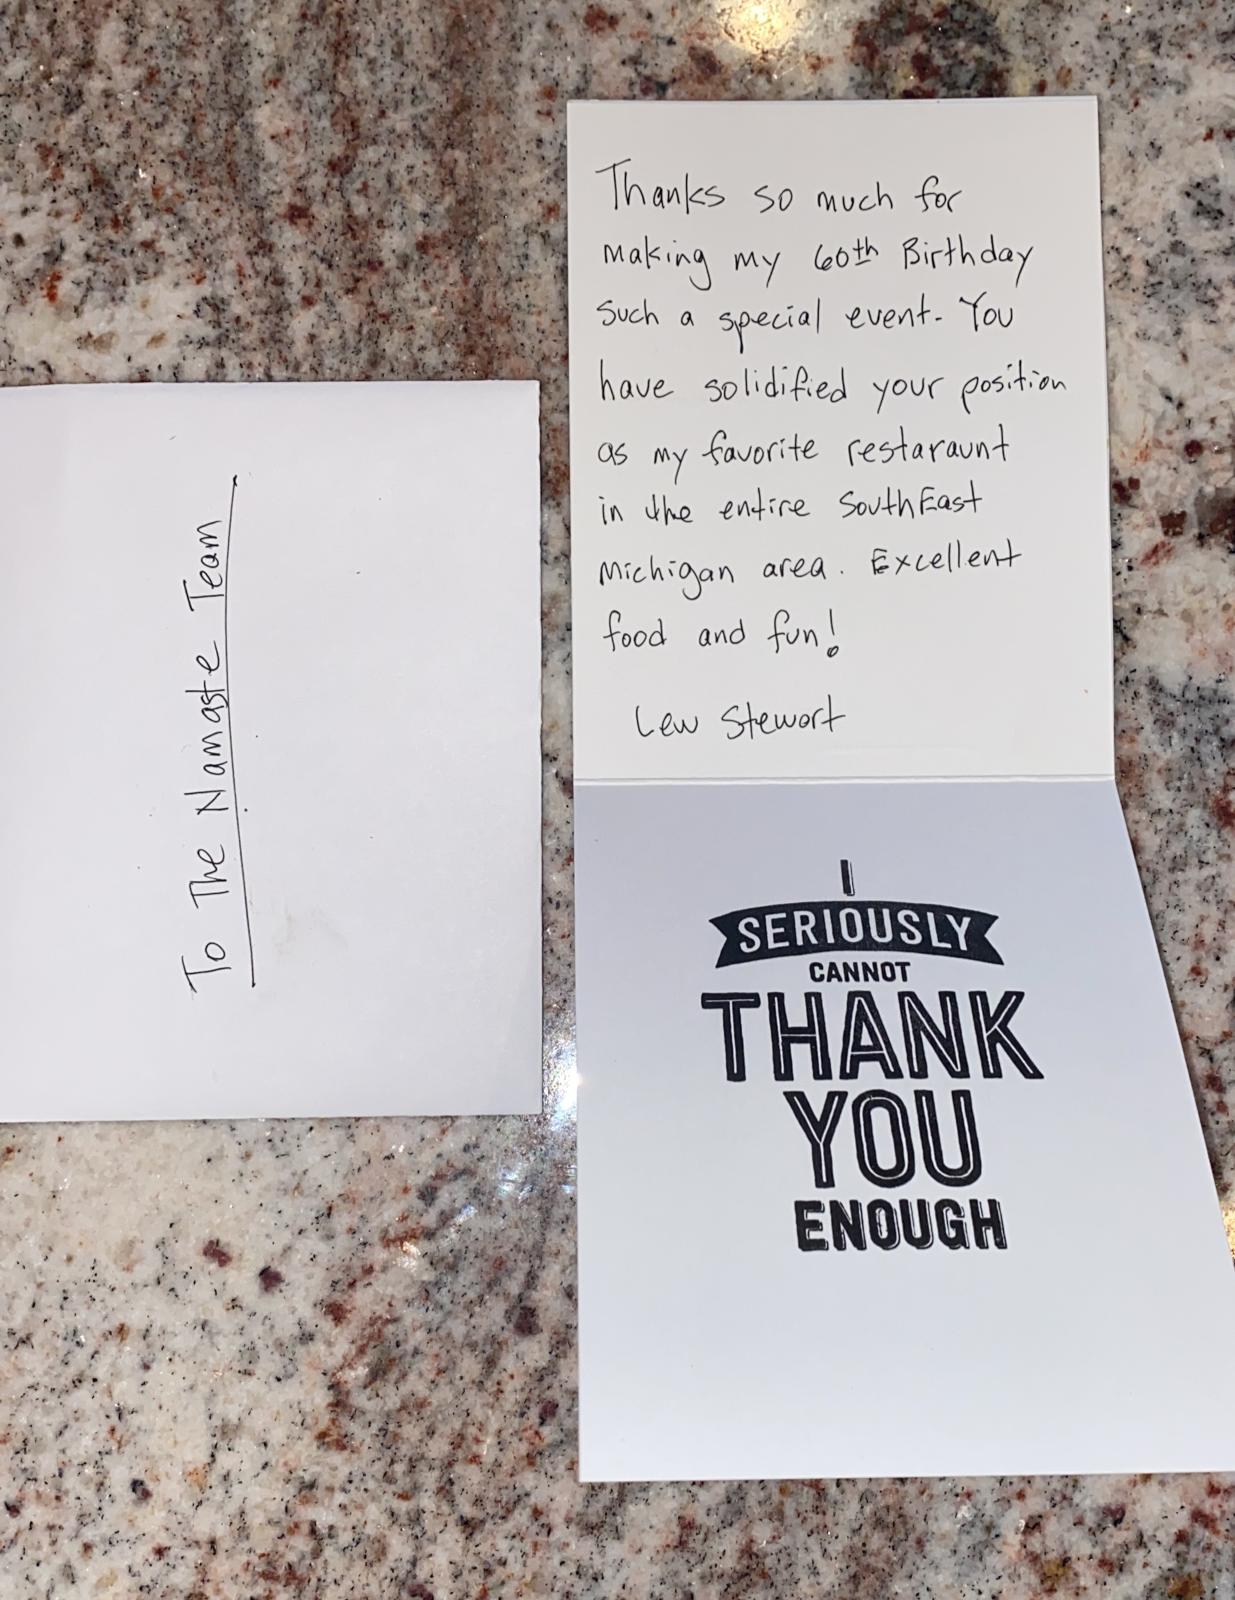 To The Namaste Team
Thanks so much for
making my 60th Birthday
such a special event. You
have solidified your position
as my favorite restaraunt
in the entire SouthEast
Michigan area. Excellent
food and fun!
Lew Stewart
I
SERIOUSLY
CANNOT
THANK
YOU
ENOUGH